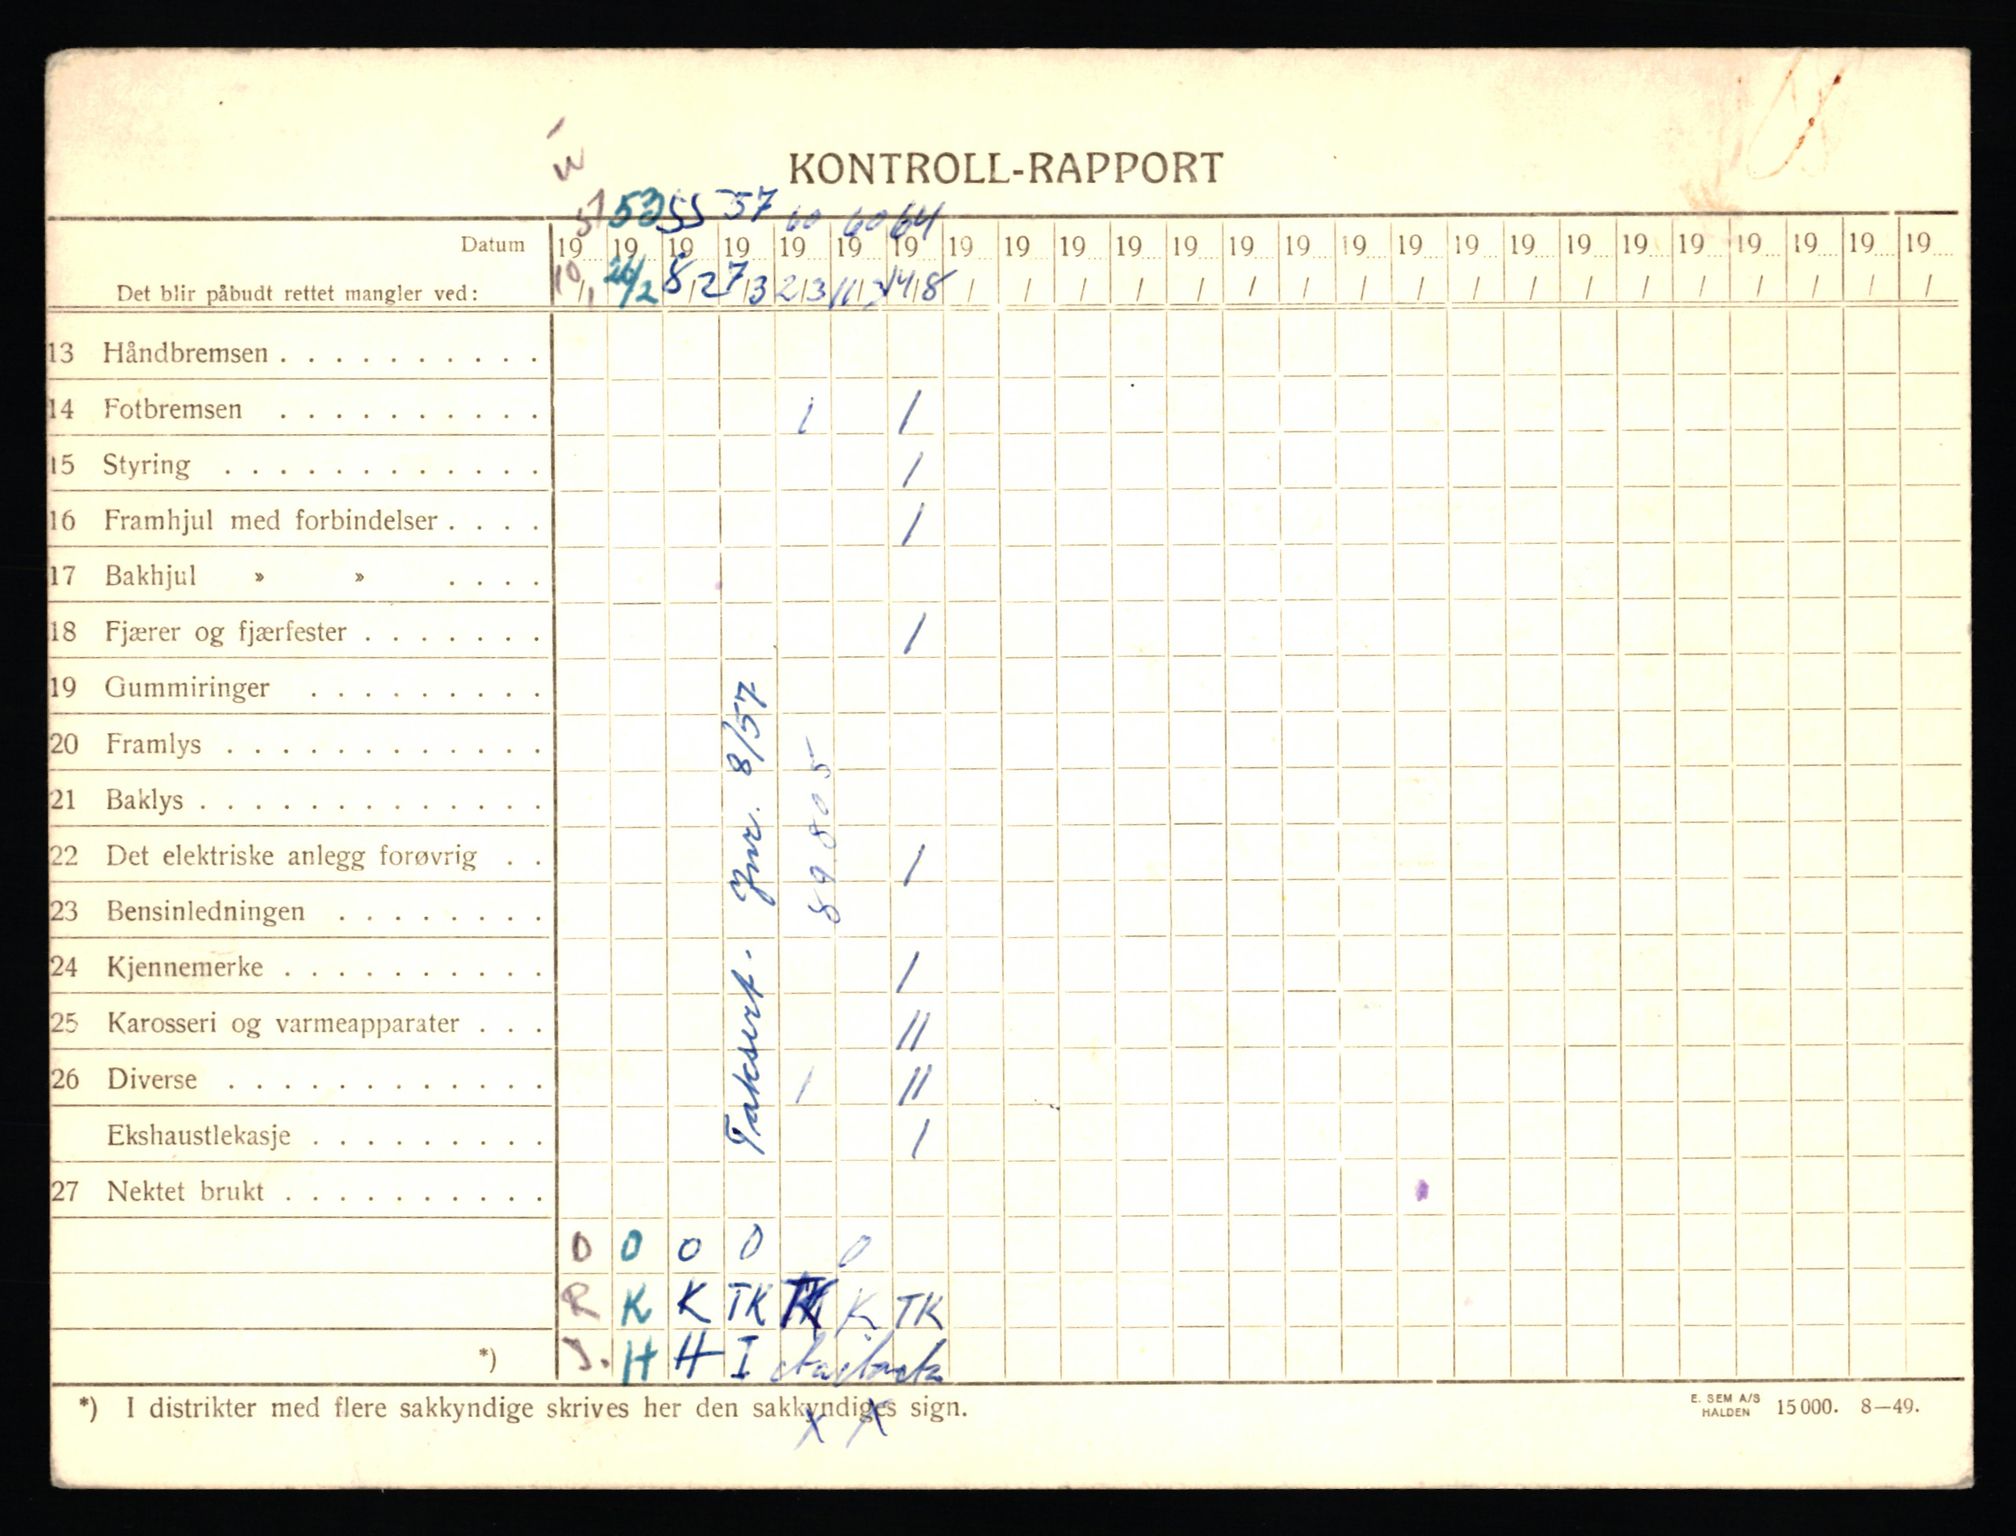 KONTROLL-RAPPORT
51 53 55 57 60 60 64
Datum 19 19 19 19 19 19 19 19 19 19 19 19 19 19 19 19 19 19 19 19 19 19 19 19 19
Det blir påbudt rettet mangler ved: 10/1 26/2 8/2 7/3 2/3 11/3 14/8 / / / / / / / / / / / / / / / / / /
13 Håndbremsen . . . . . . . . . .
14 Fotbremsen . . . . . . . . . . 1 1
15 Styring . . . . . . . . . . . . 1
16 Framhjul med forbindelser . . . . 1
17 Bakhjul » » . . . .
18 Fjærer og fjærfester . . . . . . . 1
19 Gummiringer . . . . . . . . .
20 Framlys . . . . . . . . . . . .
21 Baklys . . . . . . . . . . . . .
22 Det elektriske anlegg forøvrig . . 1
23 Bensinledningen . . . . . . . .
24 Kjennemerke . . . . . . . . . . 1
25 Karosseri og varmeapparater . . . 11
26 Diverse . . . . . . . . . . . . 1 11
Ekshaustlekasje . . . . . . . . . 1
27 Nektet brukt . . . . . . . . . .
Taksert. Jnr. 8/57
89805
0 0 0 0 0
R K K TK TK K TK
*) J. H H I
*) I distrikter med flere sakkyndige skrives her den sakkyndiges sign.
x x
E. SEM A/S
HALDEN 15 000. 8—49.